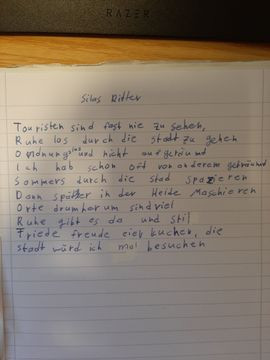 RAZER
Silas Ritter
Touristen sind fast nie zu sehen,
Ruhe los durch die stadt zu gehen
Ordnungslos und nicht aufgeräumt
Ich hab schon oft von anderem geträumt
Sommers durch die stad spazieren
Dann später in der Heide Maschieren
Orte drumherum sind viel
Ruhe gibt es da und Stil
Friede freude eierkuchen, die
stadt würd ich mal besuchen